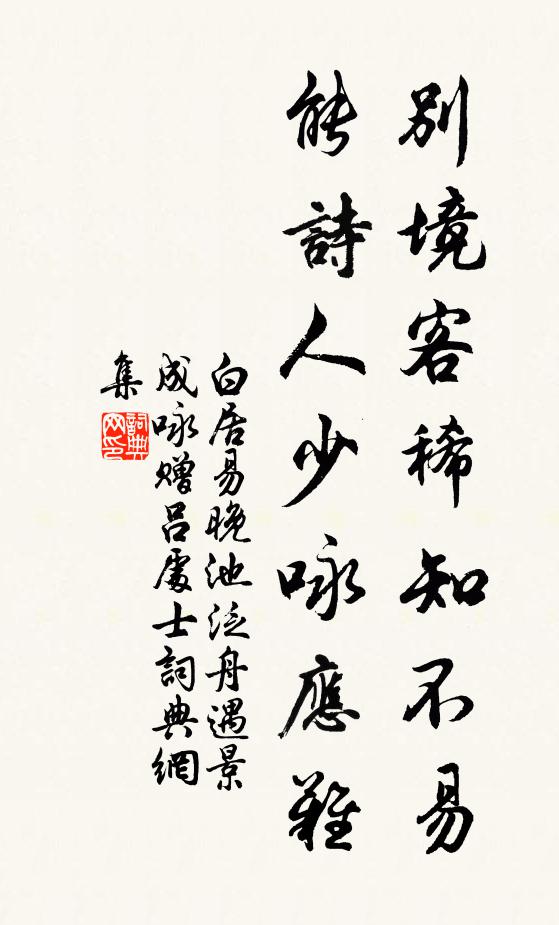 別境客稀知不易
能詩人少咏應難
白居易晚池泛舟遇景
成咏贈吕處士詞典網
集
詞典
网印